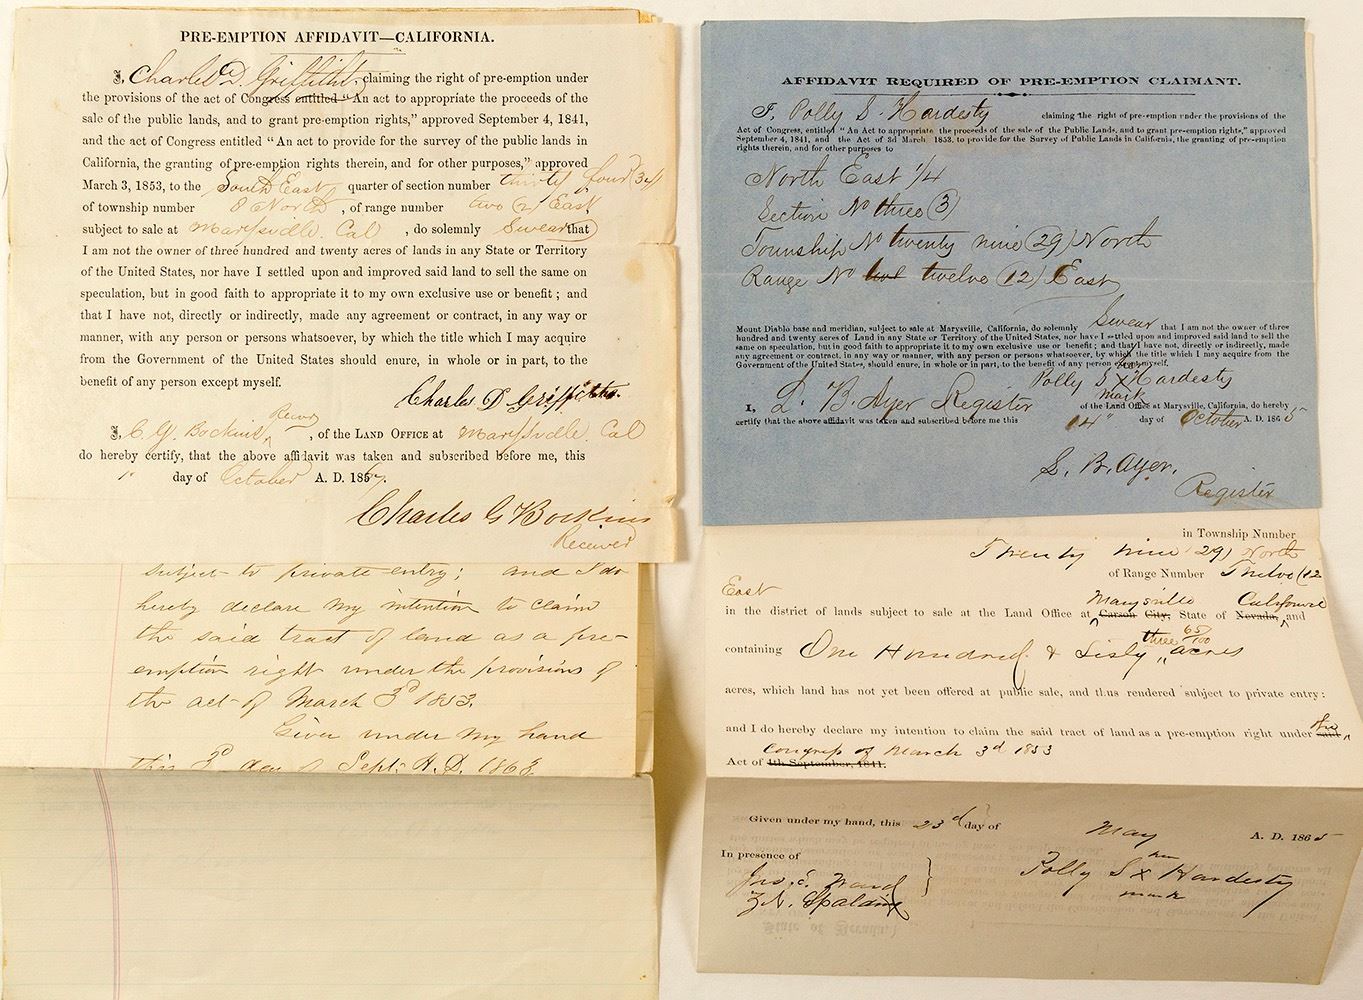 PRE-EMPTION AFFIDAVIT—CALIFORNIA.
I, Charles D. Griffiths claiming the right of pre-emption under
the provisions of the act of Congress entitled "An act to appropriate the proceeds of the
sale of the public lands, and to grant pre-emption rights," approved September 4, 1841,
and the act of Congress entitled "An act to provide for the survey of the public lands in
California, the granting of pre-emption rights therein, and for other purposes," approved
March 3, 1853, to the South East quarter of section number thirty four (34)
of township number 8 North, of range number two (2) East,
subject to sale at Marysville. Cal, do solemnly Swear that
I am not the owner of three hundred and twenty acres of lands in any State or Territory
of the United States, nor have I settled upon and improved said land to sell the same on
speculation, but in good faith to appropriate it to my own exclusive use or benefit; and
that I have not, directly or indirectly, made any agreement or contract, in any way or
manner, with any person or persons whatsoever, by which the title which I may acquire
from the Government of the United States should enure, in whole or in part, to the
benefit of any person except myself.
Charles D Griffiths.
I, C. G. Bockius, Recvr, of the LAND OFFICE at Marysville Cal
do hereby certify, that the above affidavit was taken and subscribed before me, this
1" day of October A. D. 185
Charles G Bockius
Receiver
subject to private entry; and I do
hereby declare my intention to claim
the said tract of land as a pre-
emption right under the provisions of
the act of March 3d 1853.
Given under my hand
this 3d day of Sept. A. D. 1863
AFFIDAVIT REQUIRED OF PRE-EMPTION CLAIMANT.
I, Polly S. Hardesty claiming the right of pre-emption under the provisions of the
Act of Congress, entitled "An Act to appropriate the proceeds of the sale of the Public Lands, and to grant pre-emption rights," approved
September 4, 1841, and the Act of 3d March 1853, to provide for the Survey of Public Lands in California, the granting of pre-emption
rights therein, and for other purposes to
North East 1/4
Section No three (3)
Township No twenty nine (29) North
Range No twelve (12) East
Mount Diablo base and meridian, subject to sale at Marysville, California, do solemnly Swear that I am not the owner of three
hundred and twenty acres of Land in any State or Territory of the United States, nor have I settled upon and improved said land to sell the
same on speculation, but in good faith to appropriate it to my own exclusive use or benefit; and that I have not, directly or indirectly, made
any agreement or contract, in any way or manner, with any person or persons whatsoever, by which the title which I may acquire from the
Government of the United States, should enure, in whole or in part, to the benefit of any person except myself.
her
Polly S X Hardesty
mark
I, L. B. Ayer Register of the Land Office at Marysville, California, do hereby
certify that the above affidavit was taken and subscribed before me this 14" day of October A. D. 1865
L. B. Ayer.
Register
in Township Number
Twenty nine (29) North
of Range Number Twelve (12
East
in the district of lands subject to sale at the Land Office at Marysville Carson City, State of California Nevada, and
containing One Hundred & Sixty three 65/100 acres
acres, which land has not yet been offered at public sale, and thus rendered subject to private entry:
and I do hereby declare my intention to claim the said tract of land as a pre-emption right under the said
Act of Congress of March 3d 1853 4th September, 1841.
Given under my hand, this 23d day of May A. D. 1865
In presence of
Jno. S. Ward
Z. N. Spalding
her
Polly S X Hardesty
mark